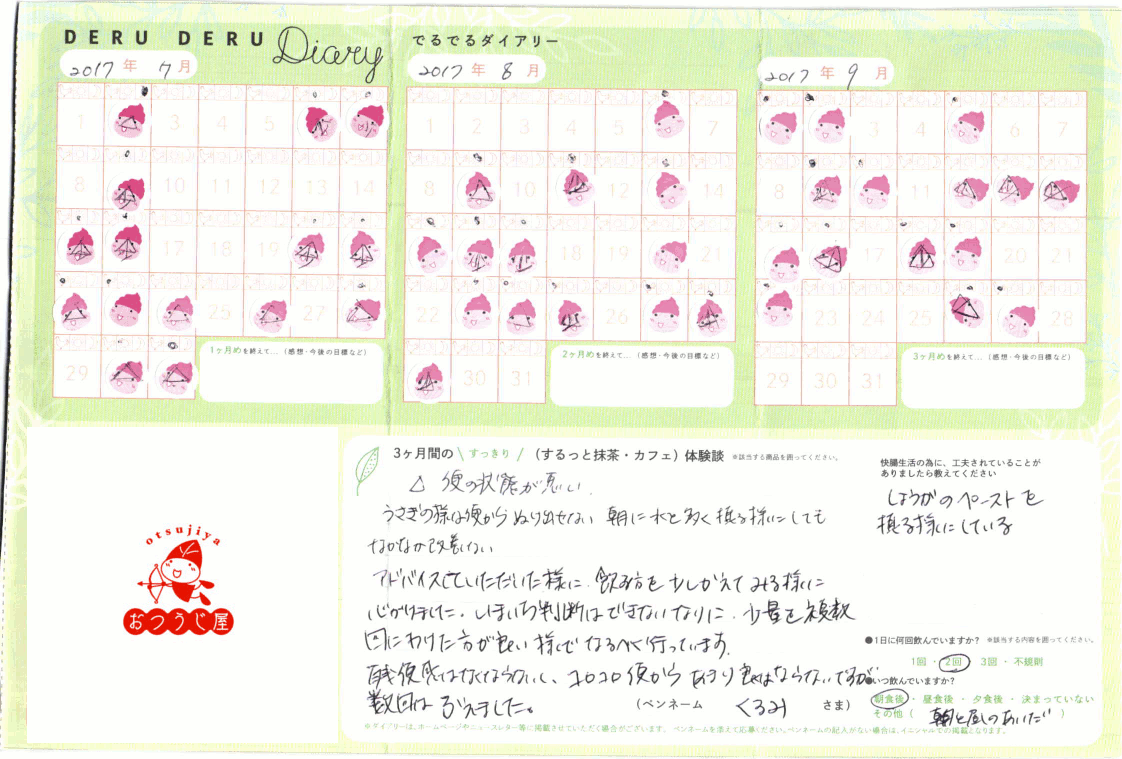 DERU DERU Diary でるでるダイアリー
2017年 7月
2017年 8月
2017年 9月
1 3 4 5
8 10 11 12 13 14
17 18 19
25 27
29
1ヶ月めを終えて…（感想・今後の目標など）
1 2 3 4 5 7
8 10 12 14
18 19 21
22 26
30 31
2ヶ月めを終えて…（感想・今後の目標など）
3 4 6 7
8 11
17 20 21
23 24 25 28
29 30 31
3ヶ月めを終えて…（感想・今後の目標など）
3ヶ月間の\すっきり/（するっと抹茶・カフェ）体験談 ※該当する商品を囲ってください。
△ 便の状態が悪い.
うさぎの様な便からぬけ出せない 朝に水を多く摂る様にしても
なかなか改善しない
アドバイスしていただいた様に、飲み方を少しかえてみる様に
心がけました。いまいち判断はできないなりに、少量を複数
回にわけた方が良い様で なるべく行っています。
残便感はなくならないし、コロコロ便から あまり良くはならないですが
数回は ふえました。
（ペンネーム くるみ さま）
※ダイアリーは、ホームページやニュースレター等に掲載させていただく場合がございます。ペンネームを添えて応募ください。ペンネームの記入がない場合は、イニシャルでの掲載となります。
快腸生活の為に、工夫されていることが
ありましたら教えてください
しょうがのペーストを
摂る様にしている
●1日に何回飲んでいますか？ ※該当する内容を囲ってください。
1回・2回・3回・不規則
●いつ飲んでいますか？
朝食後・昼食後・夕食後・決まっていない
その他（朝と昼のあいだ）
otsujiya
おつうじ屋